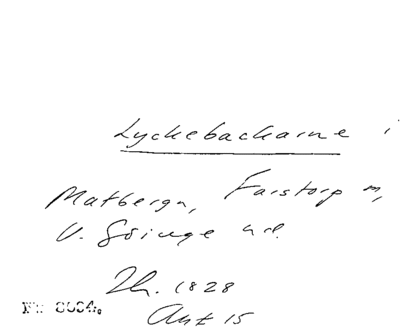 Lyckebackarne i
Matbergn, Farstorp m,
V. Göinge hd.
1828
Ant 15